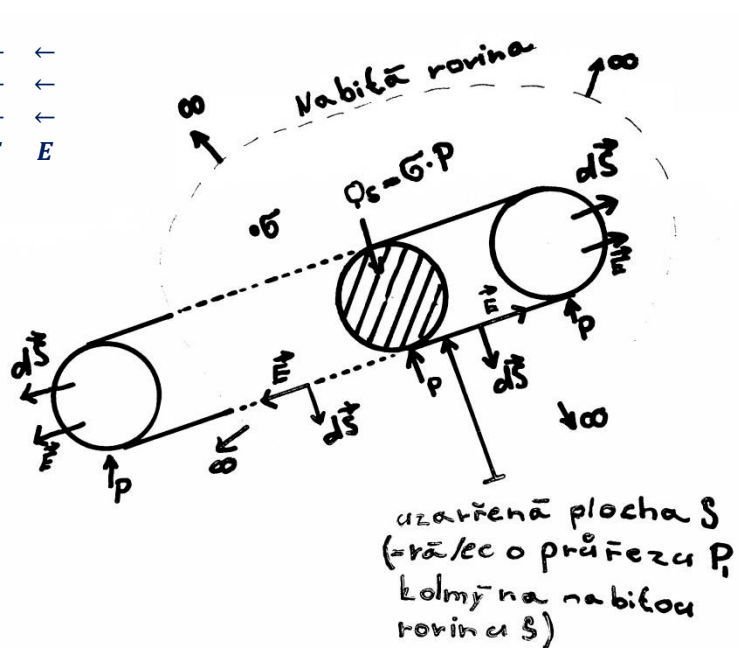 ← ←
← ←
← ←
E
Nabitā rovina
∞
∞
dS⃗
Qs=σ·P
.σ
E⃗
E⃗
P
dS⃗
dS⃗
P
E⃗
dS⃗
E⃗
∞
∞
P
uzavřenā plocha S
(=vā/ec o průřezu P,
kolmý na nabitou
rovinu S)